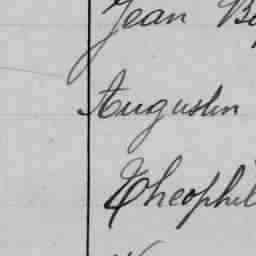 Jean B
Augustin
Theophil